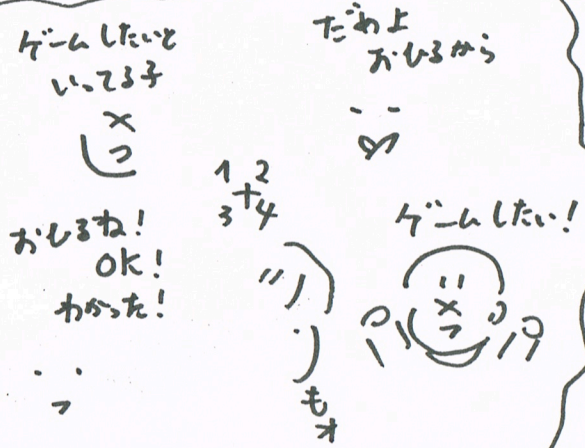 ゲームしたいと
いってる子
だめよ
おひるから
1 2
3 4
おひるね!
OK!
わかった!
ゲームしたい!